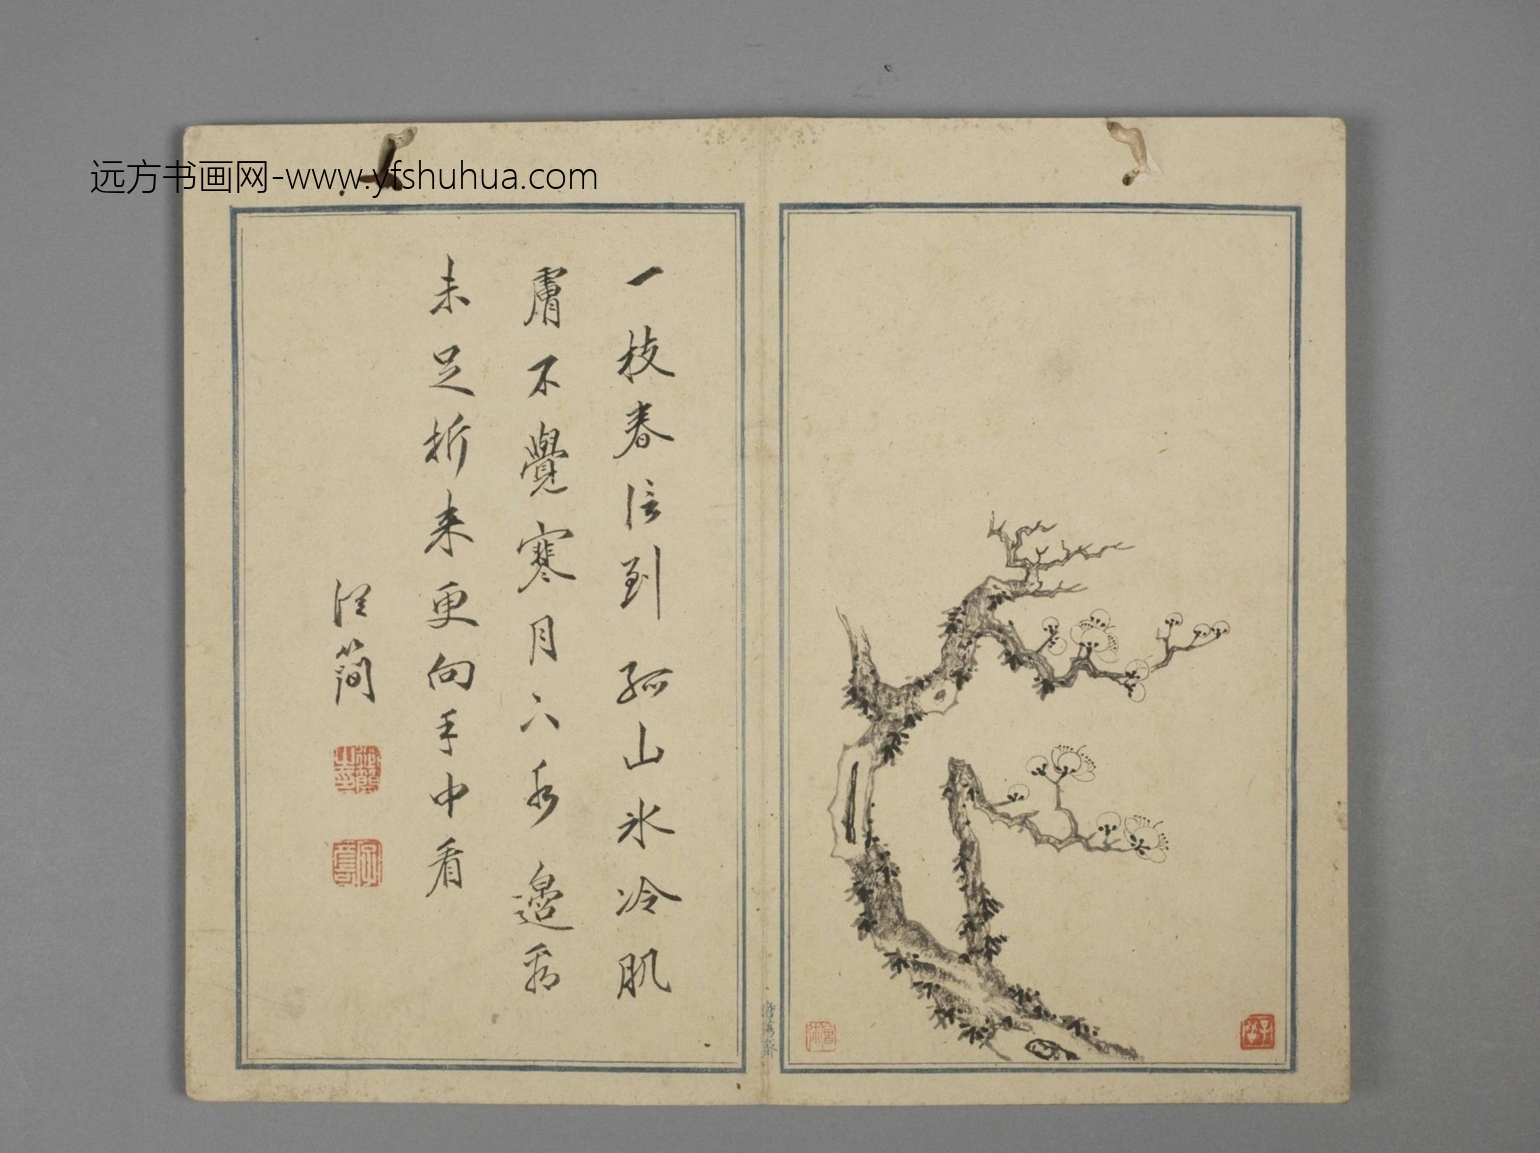 远方书画网-www.yfshuhua.com
一枝春信到孤山氷冷肌
膚不覺寒月下水邉看
未足折来更向手中看
汪簡